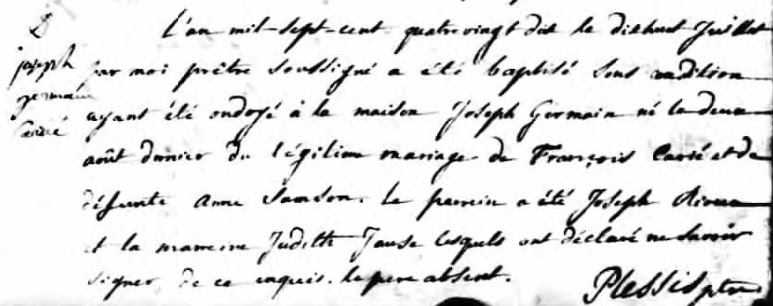 B
joseph
germain
Carié
L'an mil-sept-cent quatrevingt dix le dixhuit Juillet
par moi prêtre soussigné a été baptisé sous condition
ayant été ondoyé à la maison Joseph Germain né le deux
août dernier du légitime mariage de François Carié et de
défunte Anne Samson. Le parrein a été Joseph
et la marreine Judith Jause lesquels ont déclaré ne savoir
signer, de ce enquis. le pere absent.
Plessis ptre